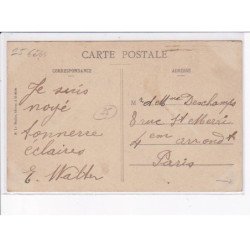 CARTE POSTALE
CORRESPONDANCE
ADRESSE
Je suis
noyé
tonnerre
eclaires
E. Walter
Mr et Mme Deschamps
8 rue St Merri
4 em arrondt
Paris